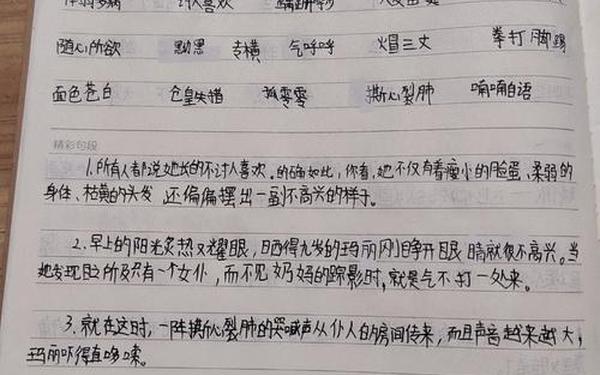 体弱多病 讨人喜欢 蹒跚
随心所欲 黝黑 专横 气呼呼 火冒三丈 拳打脚踢
面色苍白 仓皇失措 孤零零 撕心裂肺 喃喃自语
精彩句段
1.所有人都说她长的不讨人喜欢。的确如此,你看,她不仅有着瘦小的脸蛋、柔弱的
身体、枯黄的头发,还偏偏摆出一副不高兴的样子。
2.早上的阳光炙热又耀眼,晒得九岁的玛丽刚睁开眼睛就很不高兴。当
她发现目之所及只有一个女仆,而不见妈妈的踪影时,就是气不打一处来。
3.就在这时,一阵撕心裂肺的哭喊声从仆人的房间传来,而且声音越来越大,
玛丽吓得直哆嗦。